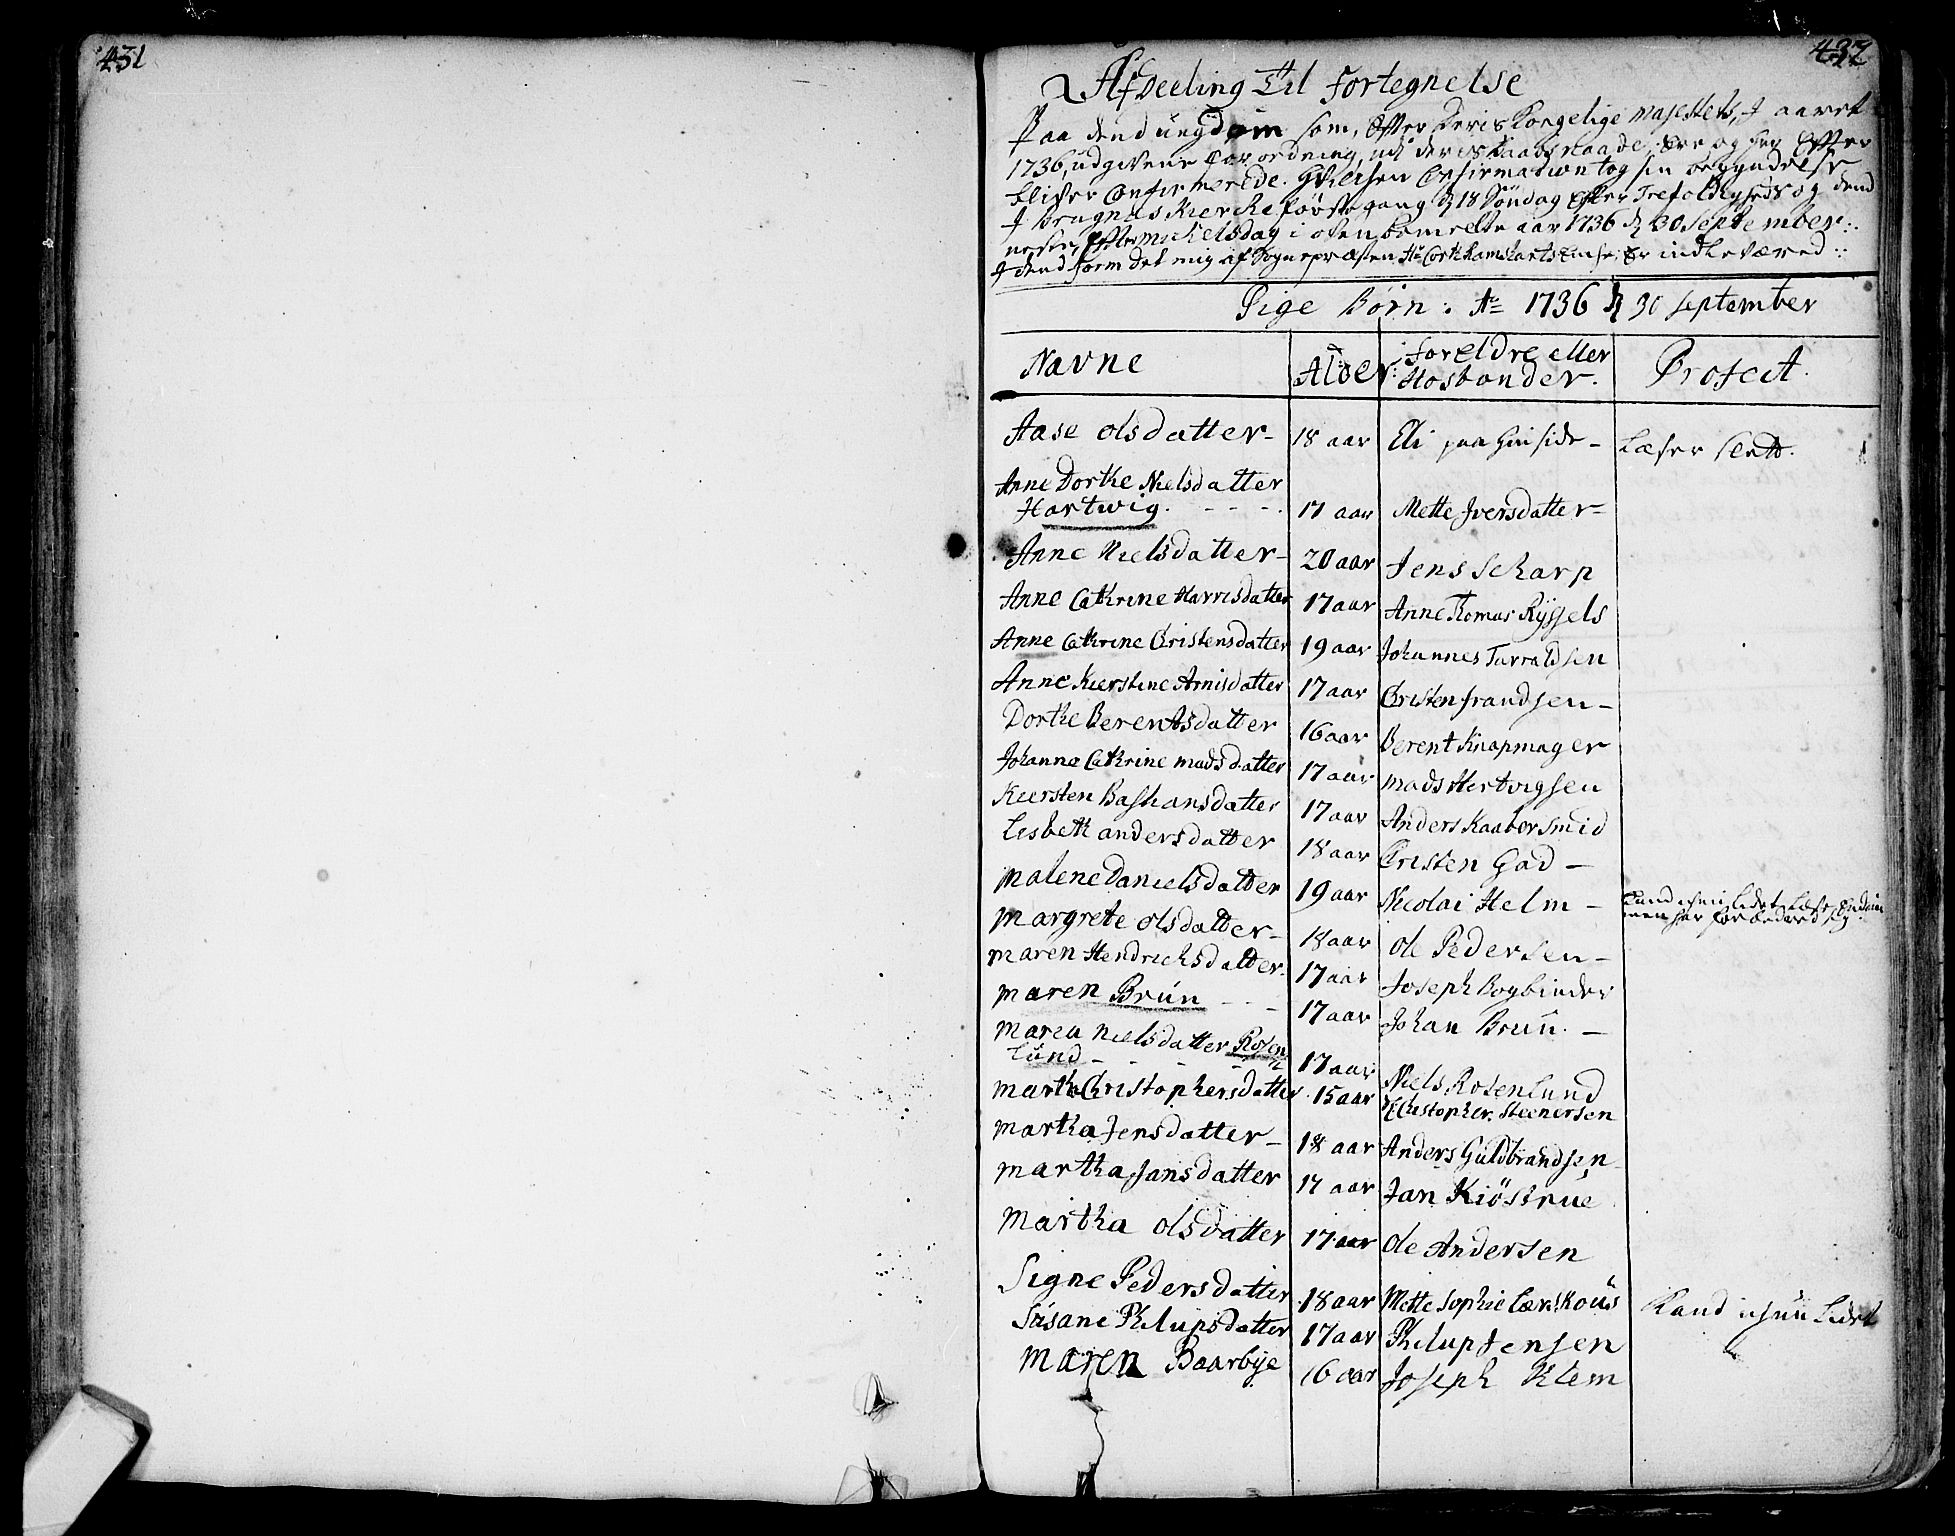 431
432
Afdeeling Til Fortegnelse
Paa dend ungdom som, Efter deris Kongelige Majestets, J aaret
1736, udgivene for ordning, ud deris daabs naade, Ere og Efter
bliver Confirmerede. Hvilchen Confirmation tog sin begyndelse
J Kierche første gang d 18 Søndag Efter Trefoldigheds og dend
neste Efter Michelsdag i oven bemelte aar 1736 d 30 September
J dend form det mig af Sogne præsten Hr er indleværed
Pige Børn: Ao 1736 d 30 september
Navne
Alder:
Foreldre eller
Hosbonder.
Profect.
Aase Olsdatter - 18 aar Eli paa hin side - Læser slett.
Anne Dorthe Nielsdatter
Hartwig. 17 aar Mette Iversdatter
Anne Nielsdatter - 20 aar Jens Scharp
Anne Cathrine Harrisdatter 17 aar Anne Thomas Ryssels
Anne Cathrine Christensdatter 19 aar Johannes Tarraldsen
Anne Kierstine Arnisdatter 17 aar Christen frandsen -
Dorthe Berentsdatter 16 aar Berent Knapmager
Johanne Cathrine Madsdatter 17 aar Mads Hertvigsen
Kiersten Bastiansdatter 17 aar Anders Kaabersmid
Lisbeth Andersdatter 18 aar Christen Gad -
Malene Danielsdatter 19 aar Nicolai Helm - Kund ichun lidet Læse
men har forbedred sig
Margrete Olsdatter - 18 aar Ole Pedersen -
Maren Hendrichsdatter. 17 aar Joseph Bogbinder
Maren Brun - - - 17 aar Johan Brun. -
Maren Nielsdatter Rosen
Lund - - - 17 aar Niels Rosenlund
Martha Christophersdatter 15 aar Christopher Steenersen
Martha Jensdatter - 18 aar Anders Guldbrandsen
Martha Jansdatter 17 aar Jan Kiøstrue
Martha Olsdatter 17 aar Ole Andersen
Signe Pedersdatter 18 aar Mette Sophie Kand ichun Lidet
Susane Philupsdatter 17 aar Philup Jensen
Maren Baarbye 16 aar Joseph Klem